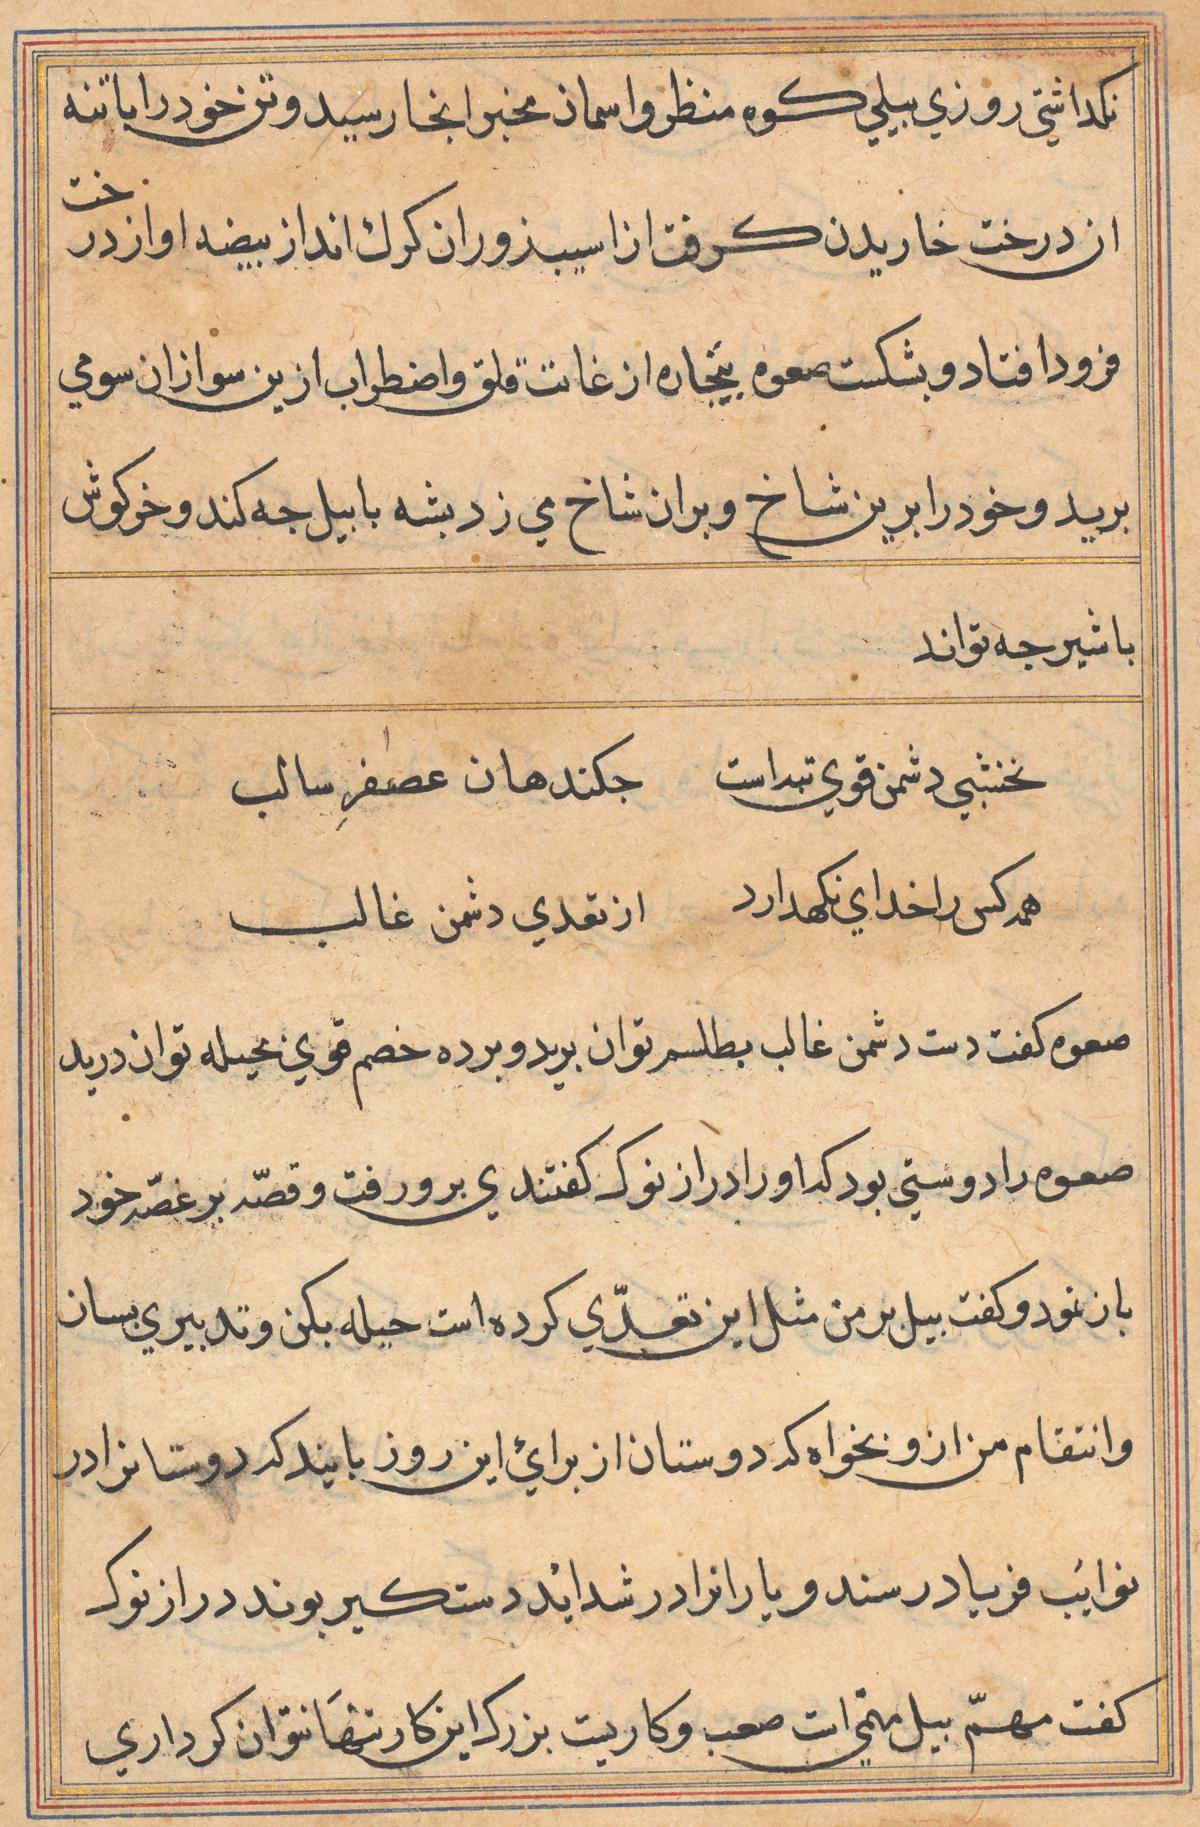 نکداشتی روزی بیلی کوه منظر واسمان مخبر انجا رسید و تن خود را با تنه
ان درخت خاریدن کرفت از اسیب زوران کرک انداز بیضه او از درخت
فرود افتاد و بشکست صعوه بیچاره از غایت قلق واضطراب ازین سو ازان سو می
برید و خود را برین شاخ و بران شاخ می زد بشه با بیل جه کند و خرکوش
با شیر جه تواند
نخشبی دشمن قوی تبداست
جکند هان عصفر سالب
همه کس را خدای نکهدارد
از تعدی دشمن غالب
صعوه کفت دست دشمن غالب بطلسم توان برید و برده خصم قوی بحیله توان درید
صعوه را دوستی بود که او را دراز نوک کفتندی برو رفت و قصّه بر غصّه خود
باز نمود و کفت بیل بر من مثل این تعدّی کرده است حیله بکن و تدبیری بسان
وانتقام من ازو بخواه که دوستان از برائ این روز بایند که دوستانرا در
نوایب فریاد رسند و یارانرا در شداید دستکیر بوند دراز نوک
کفت مهمّ بیل مهمّی است صعب و کاریت بزرک این کار تنها نتوان کرد اری